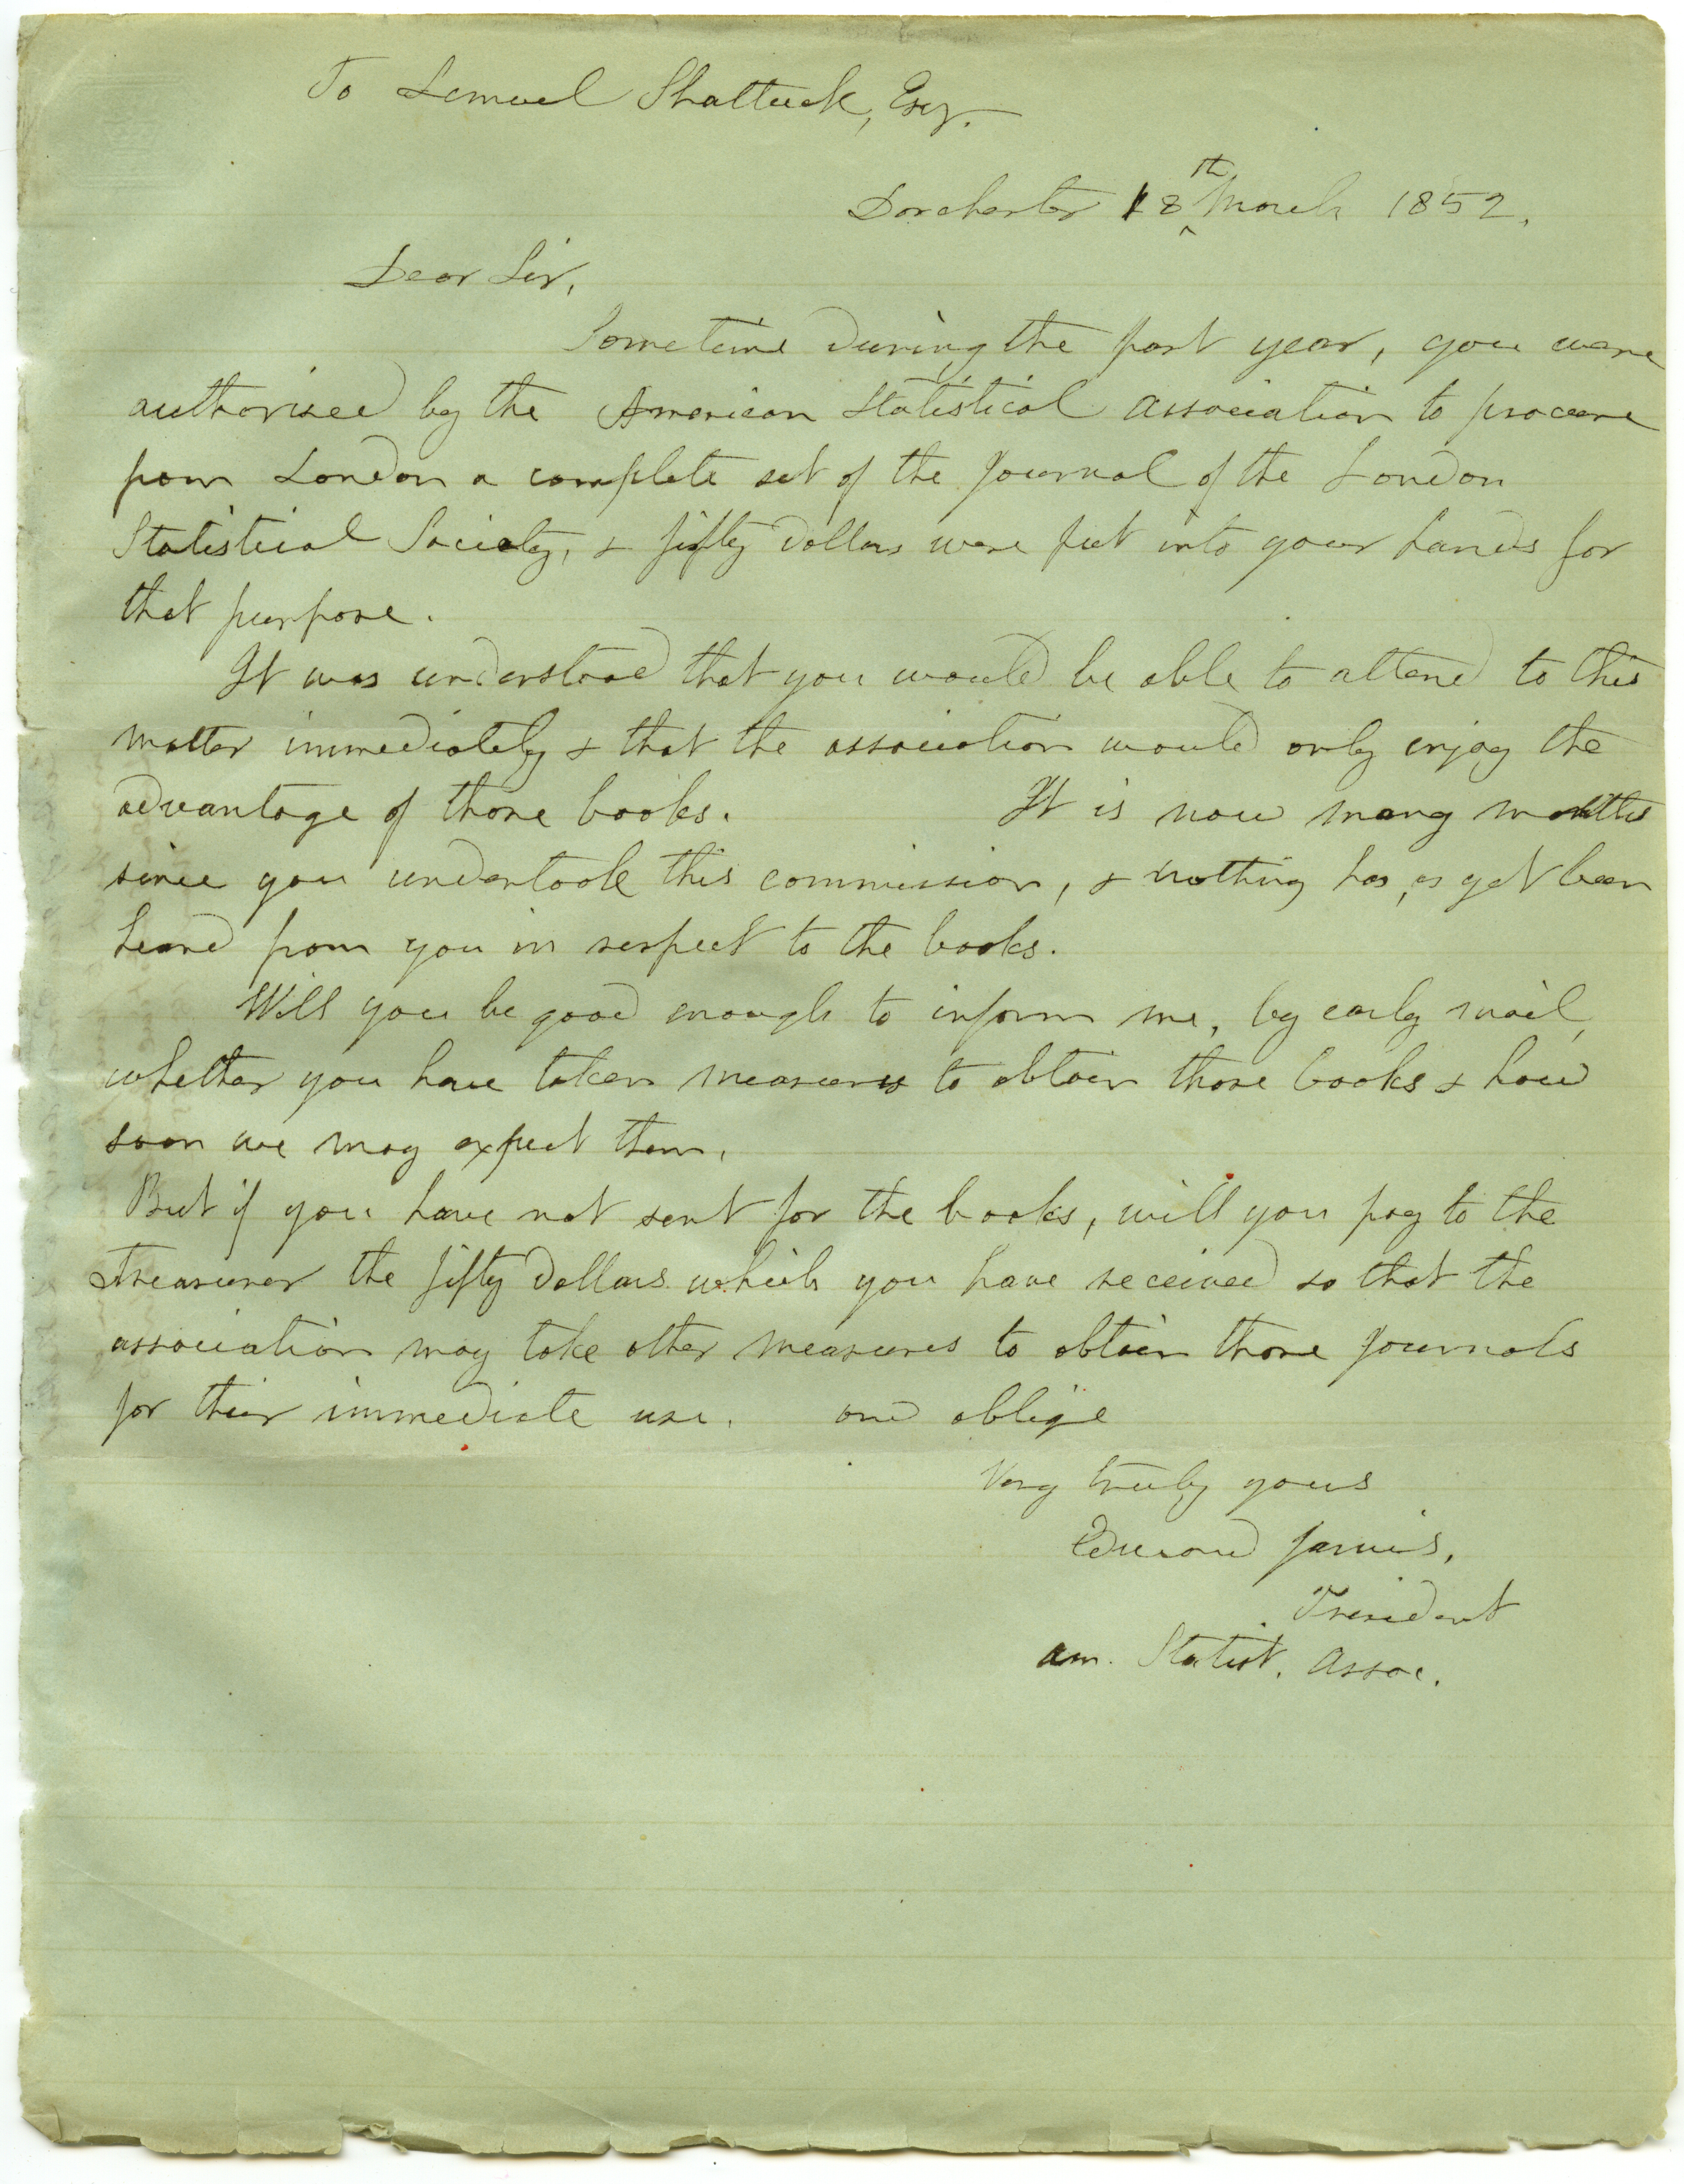 To Lemuel Shattuck, Esq.
Dorchester 18th March 1852.
Dear Sir,
Sometime during the past year, you were
authorised by the American Statistical Association to procure
from London a complete set of the Journal of the London
Statistical Society, & fifty dollars were put into your hands for
that purpose.
It was understood that you would be able to attend to this
matter immediately & that the association would only enjoy the
advantage of those books. It is now many months
since you undertook this commission, & nothing has, as yet been
heard from you in respect to the books.
Will you be good enough to inform me, by early mail,
whether you have taken measures to obtain those books & how
soon we may expect them.
But if you have not sent for the books, will you pay to the
Treasurer the fifty dollars which you have received so that the
association may take other measures to obtain those journals
for their immediate use. and oblige
Very truly yours
Edward Jarvis,
President
Am. Statist. Assoc.